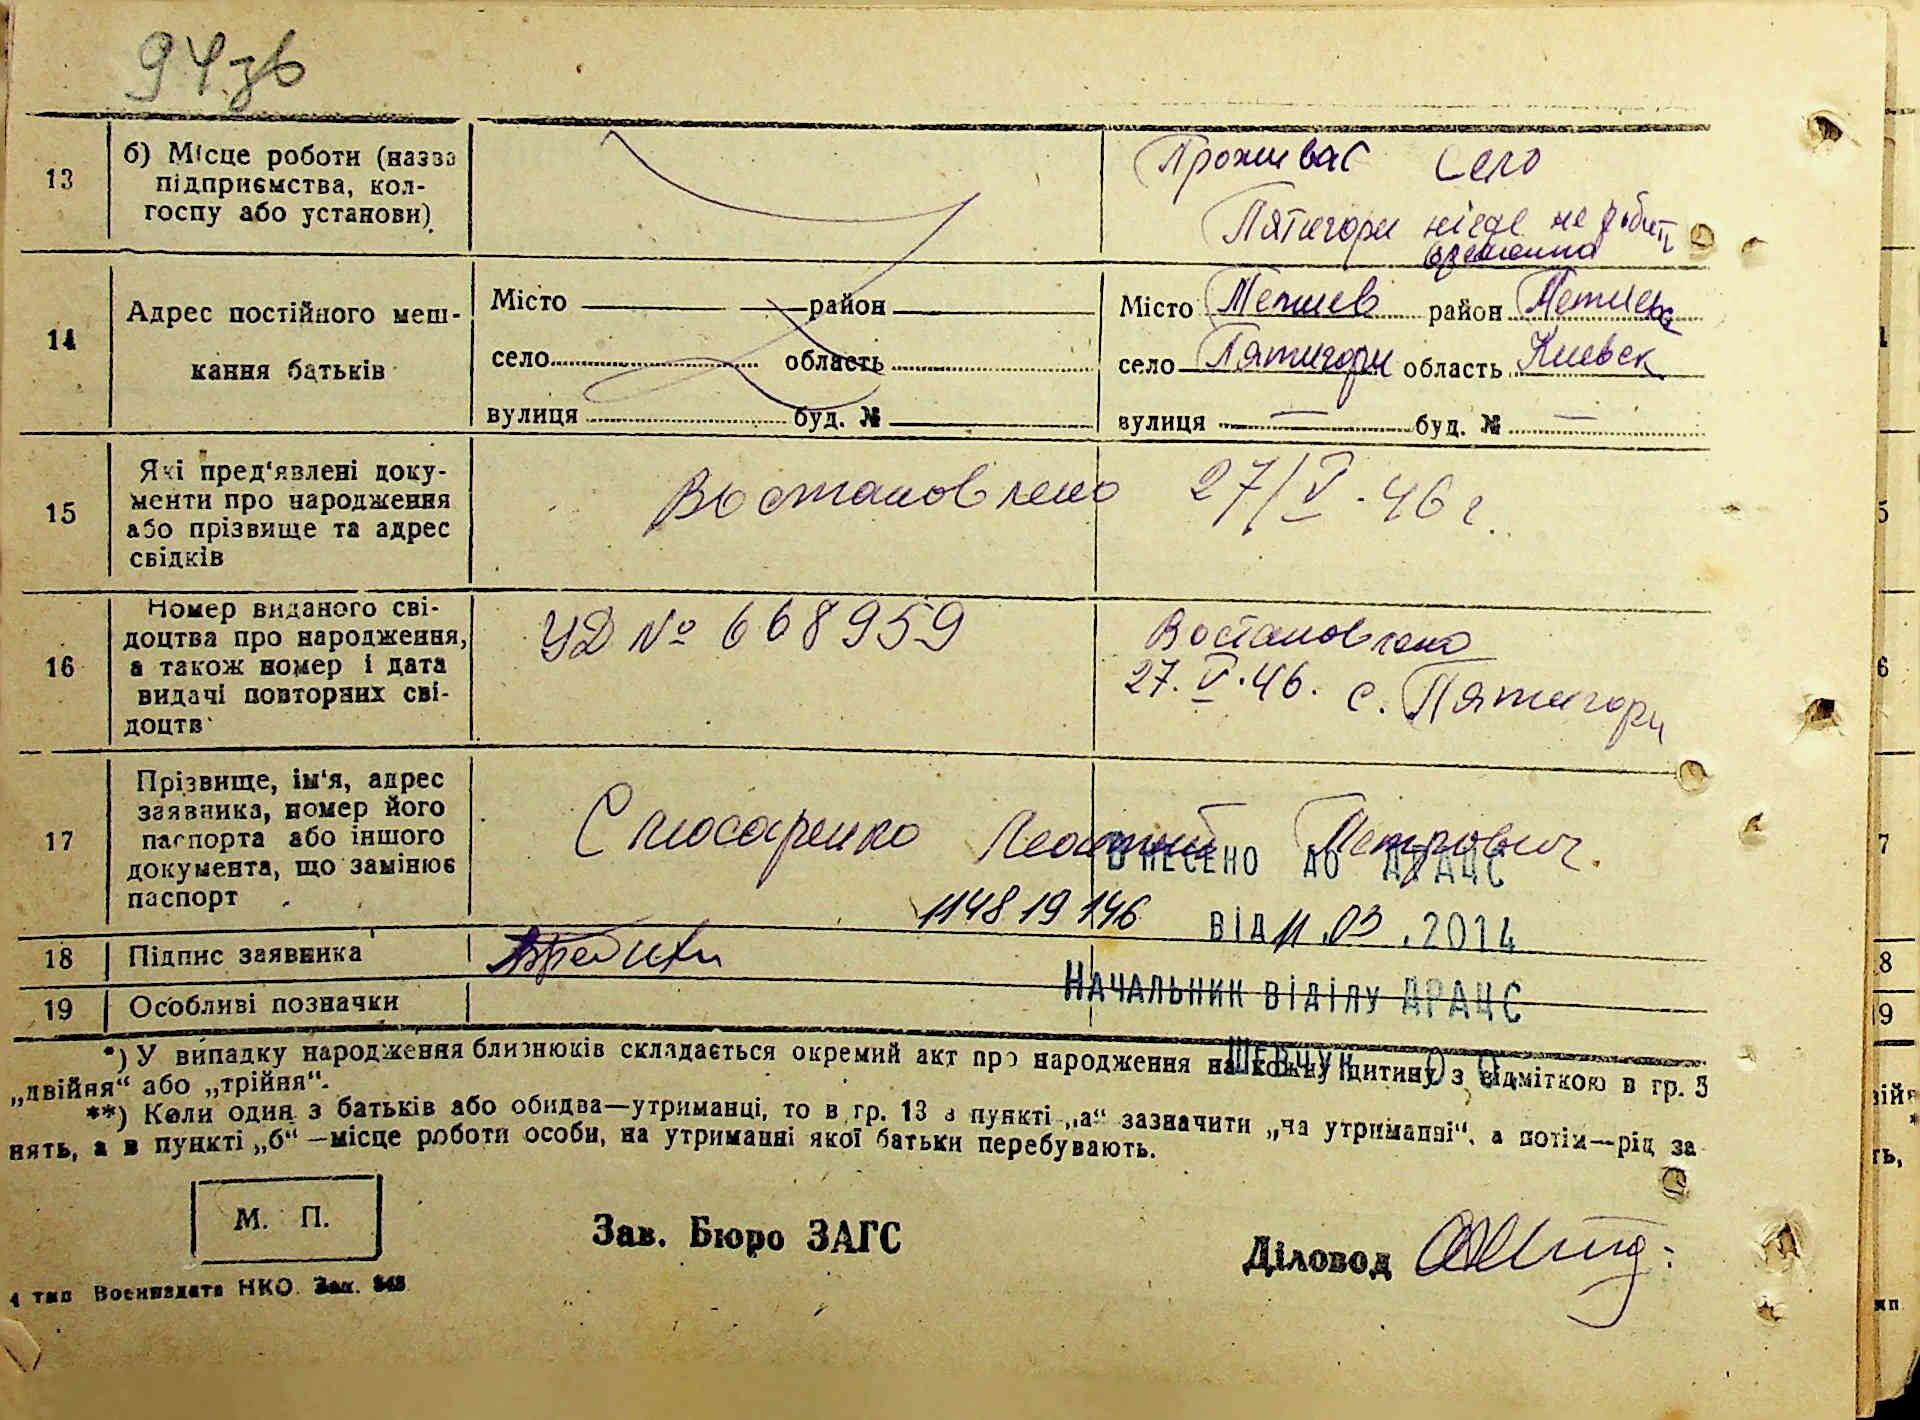 94 зв
13
б) Місце роботи (назва
підприємства, кол-
госпу або установи)
Проживає село
Пятигори нігде не робить
временно
14
Адрес постійного меш-
кання батьків
Місто район
село область
вулиця буд. №
Місто Тетиев район Тетиевс
село Пятигори область Киевск
вулиця — буд. № —
15
Які пред'явлені доку-
менти про народження
або прізвище та адрес
свідків
Востановлено 27/V.46 г.
16
Номер виданого сві-
доцтва про народження,
а також номер і дата
видачі повторних сві-
доцтв
УД № 668959
Востановлено
27.V.46. с. Пятигори
17
Прізвище, ім'я, адрес
заявника, номер його
паспорта або іншого
документа, що замінює
паспорт
Слюсаренко Петрович.
ВНЕСЕНО ДО ДРАЦС
114819146 ВІД 11.03.2014
18
Підпис заявника
НАЧАЛЬНИК ВІДІЛУ ДРАЦС
19
Особливі позначки
ШЕВЧУК О О
*) У випадку народження близнюків складається окремий акт про народження на кожну дитину з відміткою в гр. 5
„двійня“ або „трійня“.
**) Коли один з батьків або обидва—утриманці, то в гр. 13 в пункті „а“ зазначити „на утриманні“, а потім—рід за
нять, а в пункті „б“—місце роботи особи, на утриманні якої батьки перебувають.
М. П.
Зав. Бюро ЗАГС
Діловод
4 тип Воениздата НКО. Зак.